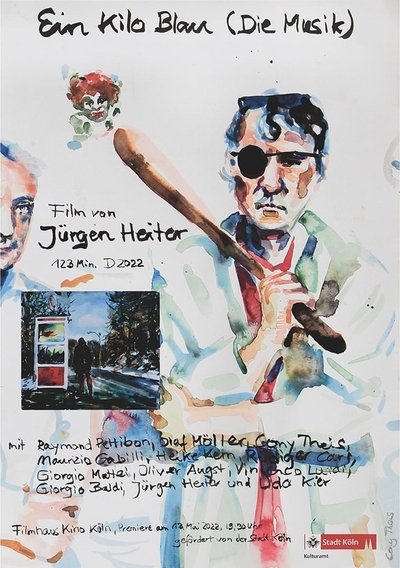 Ein Kilo Blau (Die Musik)
Film von
Jürgen Heiter
123 Min. D 2022
mit Raymond Pettibon, Olaf Möller, Gony Theis,
Maurizio Gabilli, Heike Kern, Rüdiger Carl,
Giorgio Mattei, Oliver Augst, Vincenzo Luisdi,
Giorgio Baldi, Jürgen Heiter und Udo Kier
Filmhaus Kino Köln, Premiere am 13. Mai 2022, 19,30 Uhr
gefördert von der Stadt Köln
Stadt Köln
Kulturamt